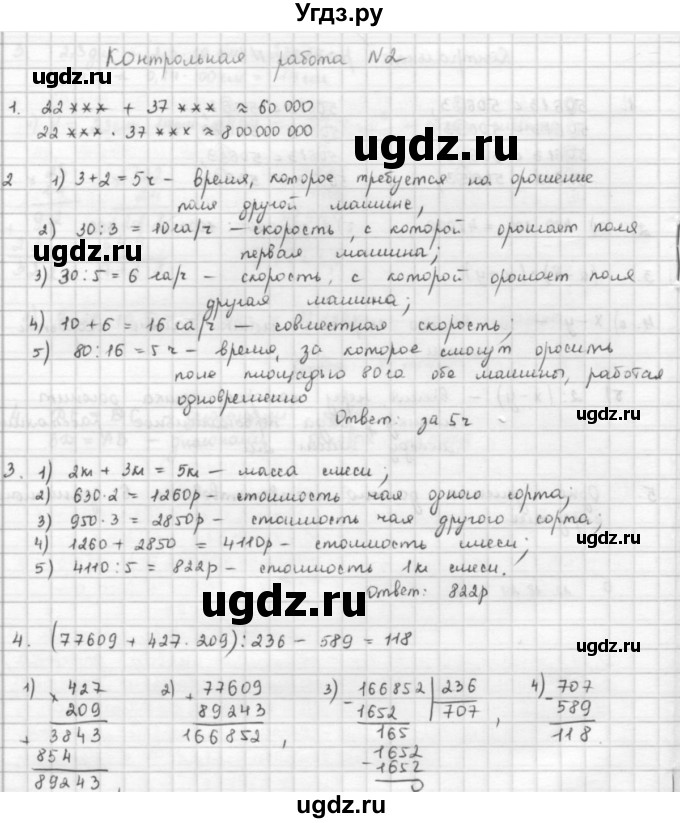 Угдз.ру
Контрольная работа №2
1. 22*** + 37*** ≈ 60 000
22*** · 37*** ≈ 800 000 000
2 1) 3+2=5ч – время, которое требуется на орошение
поля другой машине,
2) 30:3 = 10га/ч – скорость, с которой орошает поля
первая машина;
3) 30:5 = 6 га/ч – скорость, с которой орошает поля
другая машина;
4) 10+6 = 16 га/ч – совместная скорость;
5) 80:16 = 5 ч – время, за которое смогут оросить
поле площадью 80га обе машины, работая
одновременно
Ответ: за 5ч
3. 1) 2кг + 3кг = 5кг – масса смеси;
2) 630·2 = 1260р – стоимость чая одного сорта;
3) 950·3 = 2850р – стоимость чая другого сорта;
4) 1260 + 2850 = 4110р – стоимость смеси;
5) 4110:5 = 822р – стоимость 1кг смеси.
Ответ: 822р
4. (77609 + 427·209):236 – 589 = 118
1) × 427 2) + 77609 3) – 166852 | 236 4) – 707
209 89243 1652 707, 589
+ 3843 166852, 165 118.
854 1652
89243, – 1652
0
ugdz.ru
ugdz.ru
ugdz.ru
ugdz.ru
ugdz.ru
ugdz.ru
ugdz.ru
ugdz.ru
ugdz.ru
ugdz.ru